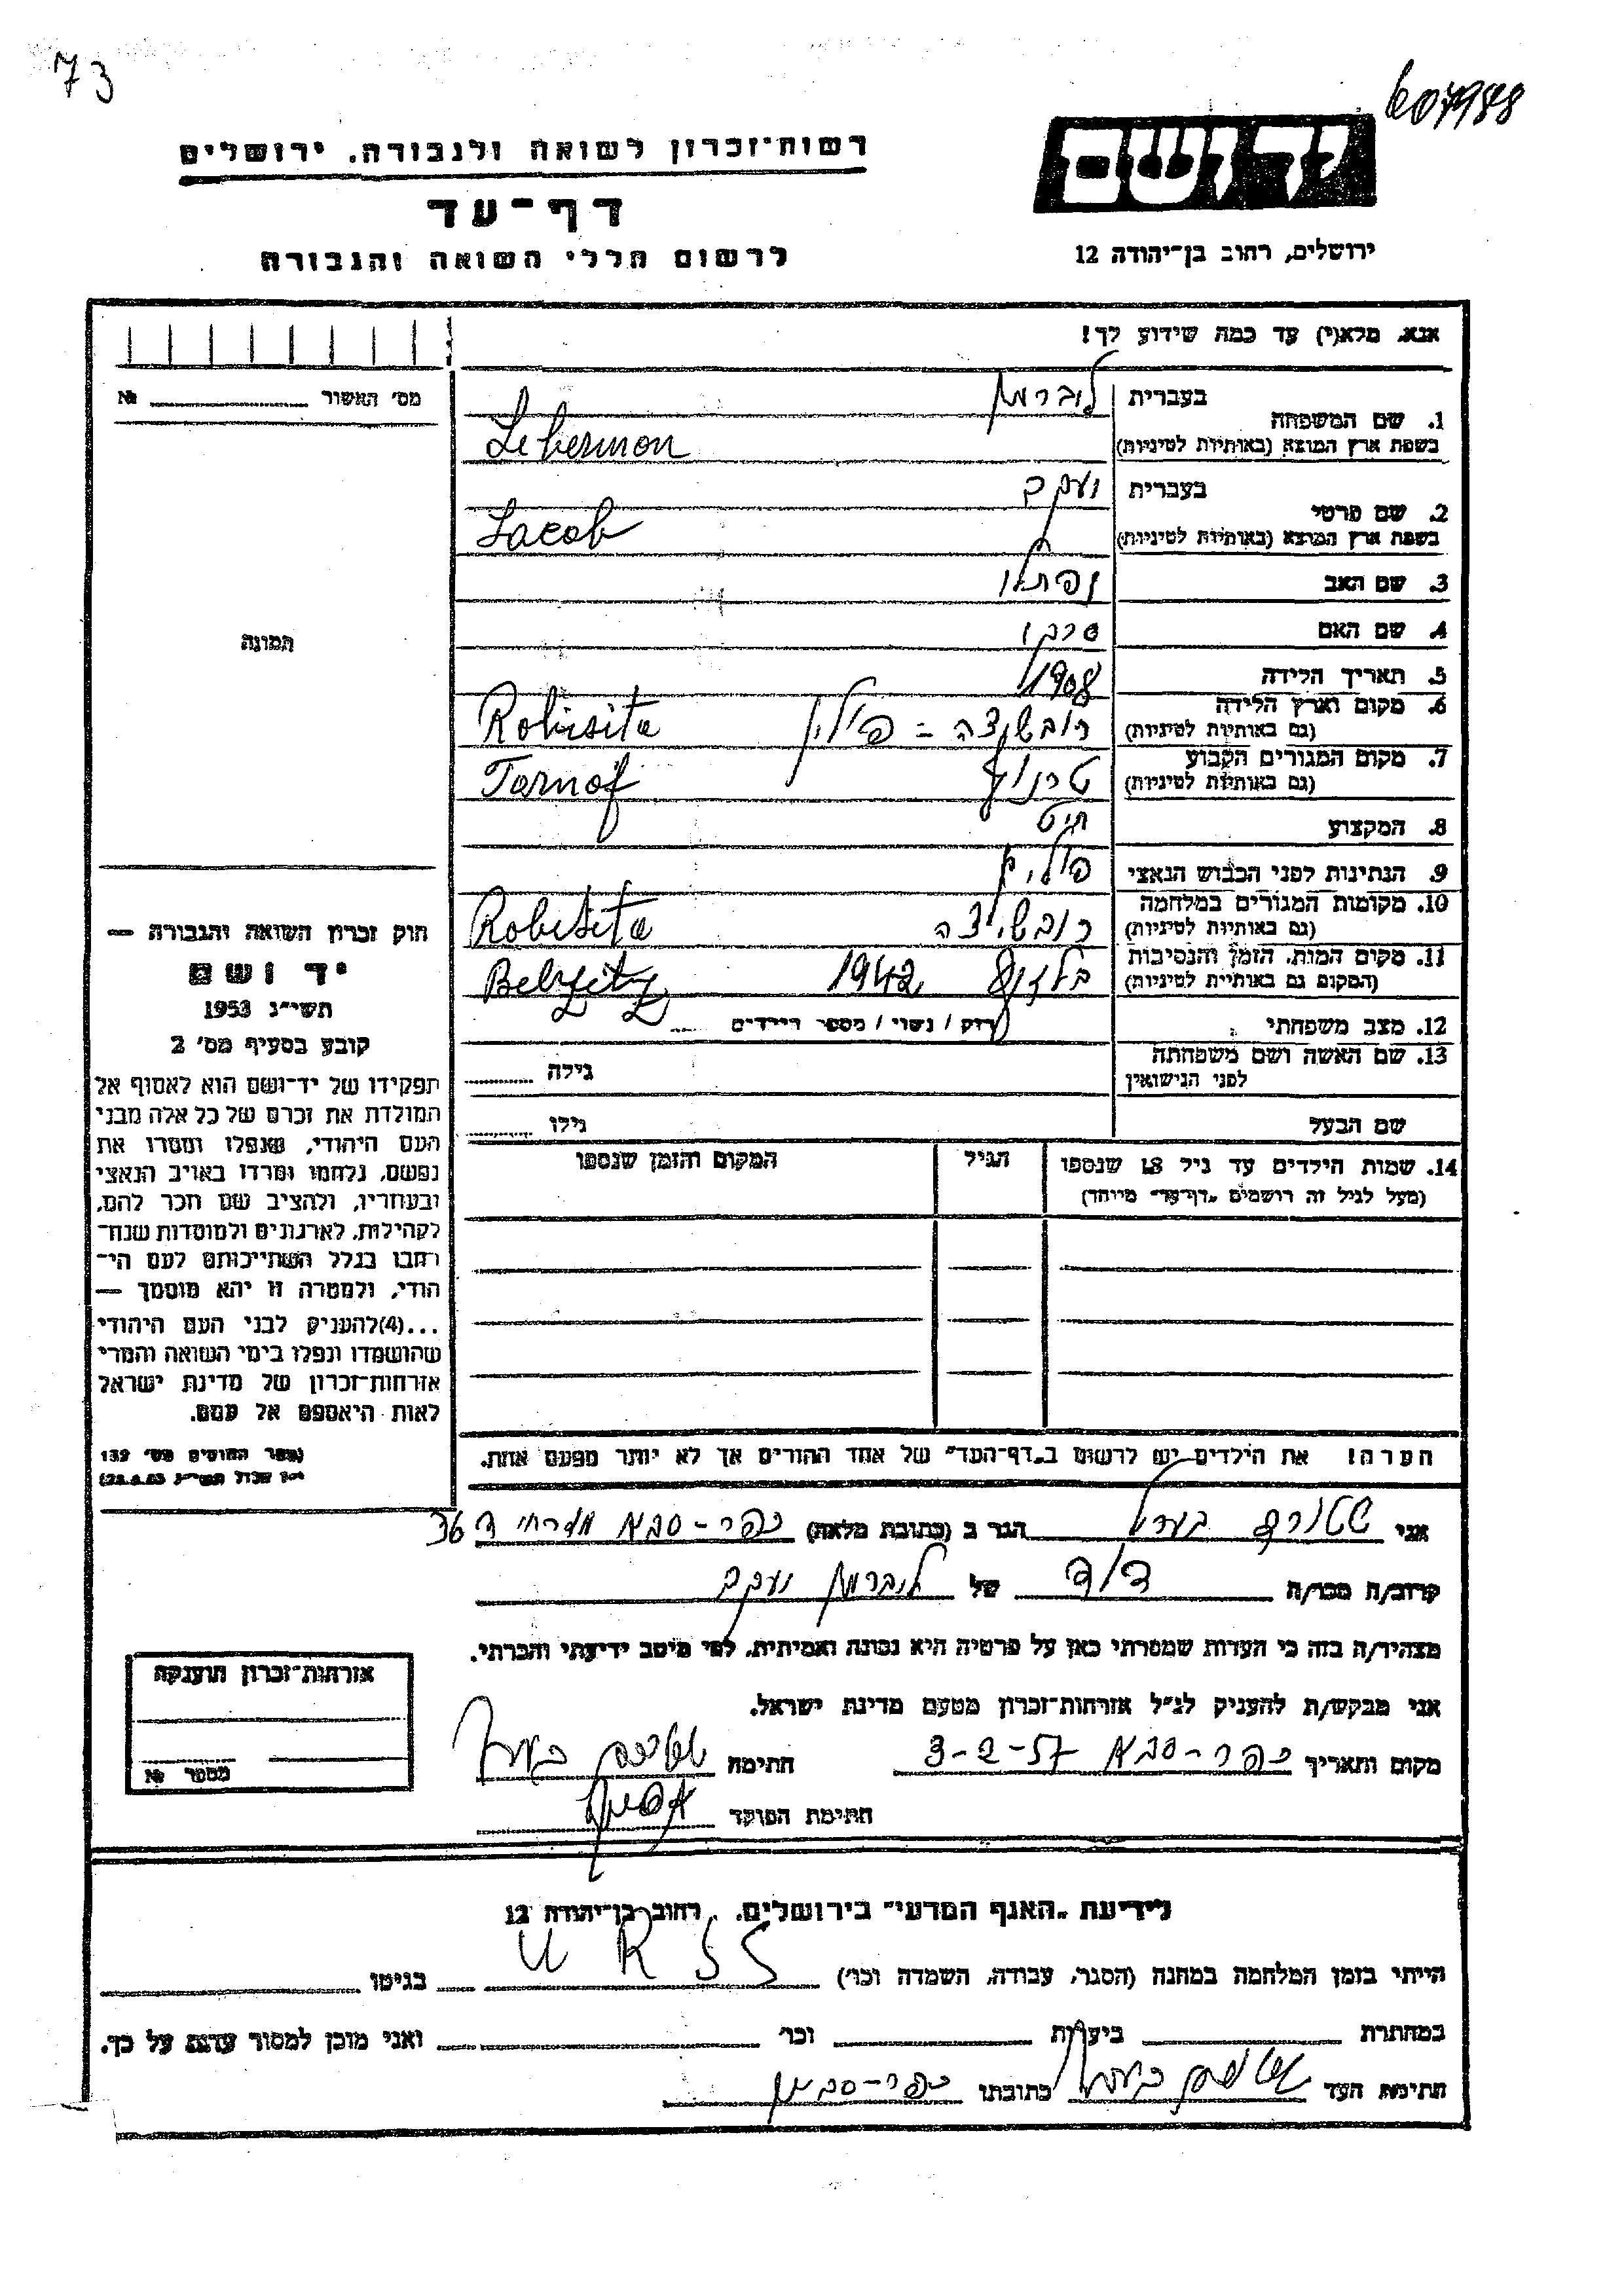 73
607988
רשות־זכרון לשואה ולגבורה, ירושלים
יד ושם
דף־עד
לרשום חללי השואה והגבורה
ירושלים, רחוב בן־יהודה 12
אנא, מלא(י) עד כמה שידוע לך!
מס׳ האשור № 
1. שם המשפחה
בעברית ליברמן
בשפת ארץ המוצא (באותיות לטיניות) Lebermon
2. שם פרטי
בעברית יעקב
בשפת ארץ המוצא (באותיות לטיניות) Jacob
3. שם האב נפתלי
4. שם האם
5. תאריך הלידה 1908
6. מקום וארץ הלידה
(גם באותיות לטיניות) רובשיצה = פולין Robisita
7. מקום המגורים הקבוע
(גם באותיות לטיניות) טרנוף Tarnof
8. המקצוע חיט
9. הנתינות לפני הכבוש הנאצי פולין
10. מקומות המגורים במלחמה
(גם באותיות לטיניות) רובשיצה Robisita
11. מקום המות, הזמן והנסיבות
(המקום גם באותיות לטיניות) 1942
12. מצב משפחתי רוק / נשוי / מספר הילדים
13. שם האשה ושם משפחתה
לפני הנישואין גילה
שם הבעל גילו
14. שמות הילדים עד גיל 18 שנספו
(מעל לגיל זה רושמים „דף־עד״ מיוחד)
הגיל
המקום והזמן שנספו
הערה! את הילדים יש לרשום ב„דף־העד״ של אחד ההורים אך לא יותר מפעם אחת.
תמונה
חוק זכרון השואה והגבורה —
יד ושם
תשי״ג 1953
קובע בסעיף מס׳ 2
תפקידו של יד־ושם הוא לאסוף אל
המולדת את זכרם של כל אלה מבני
העם היהודי, שנפלו ומסרו את
נפשם, נלחמו ומרדו באויב הנאצי
ובעוזריו, ולהציב שם וזכר להם,
לקהילות, לארגונים ולמוסדות שנח־
רבו בגלל השתייכותם לעם הי־
הודי, ולמטרה זו יהא מוסמך —
...(4) להעניק לבני העם היהודי
שהושמדו ונפלו בימי השואה והמרי
אזרחות־זכרון של מדינת ישראל
לאות היאספם אל עמם.
(ספר החוקים מס׳ 132
תשי״ג 28.8.53)
אני הגר ב (כתובת מלאה) כפר-סבא 36
קרוב/ה מכר/ה דוד של ליברמן יעקב
מצהיר/ה בזה כי העדות שמסרתי כאן על פרטיה היא נכונה ואמיתית, לפי מיטב ידיעתי והכרתי.
אני מבקש/ת להעניק לנ״ל אזרחות־זכרון מטעם מדינת ישראל.
מקום ותאריך כפר-סבא 3-2-57 חתימה
חתימת הפוקד
אזרחות־זכרון הוענקה
מספר №
לידיעת „האגף המדעי״ בירושלים, רחוב בן־יהודה 12
הייתי בזמן המלחמה במחנה (הסגר, עבודה, השמדה וכו׳) U R S S בגיטו
במחתרת ביערות וכו׳ ואני מוכן למסור עדות על כך.
חתימת העד כתובתו כפר-סבא